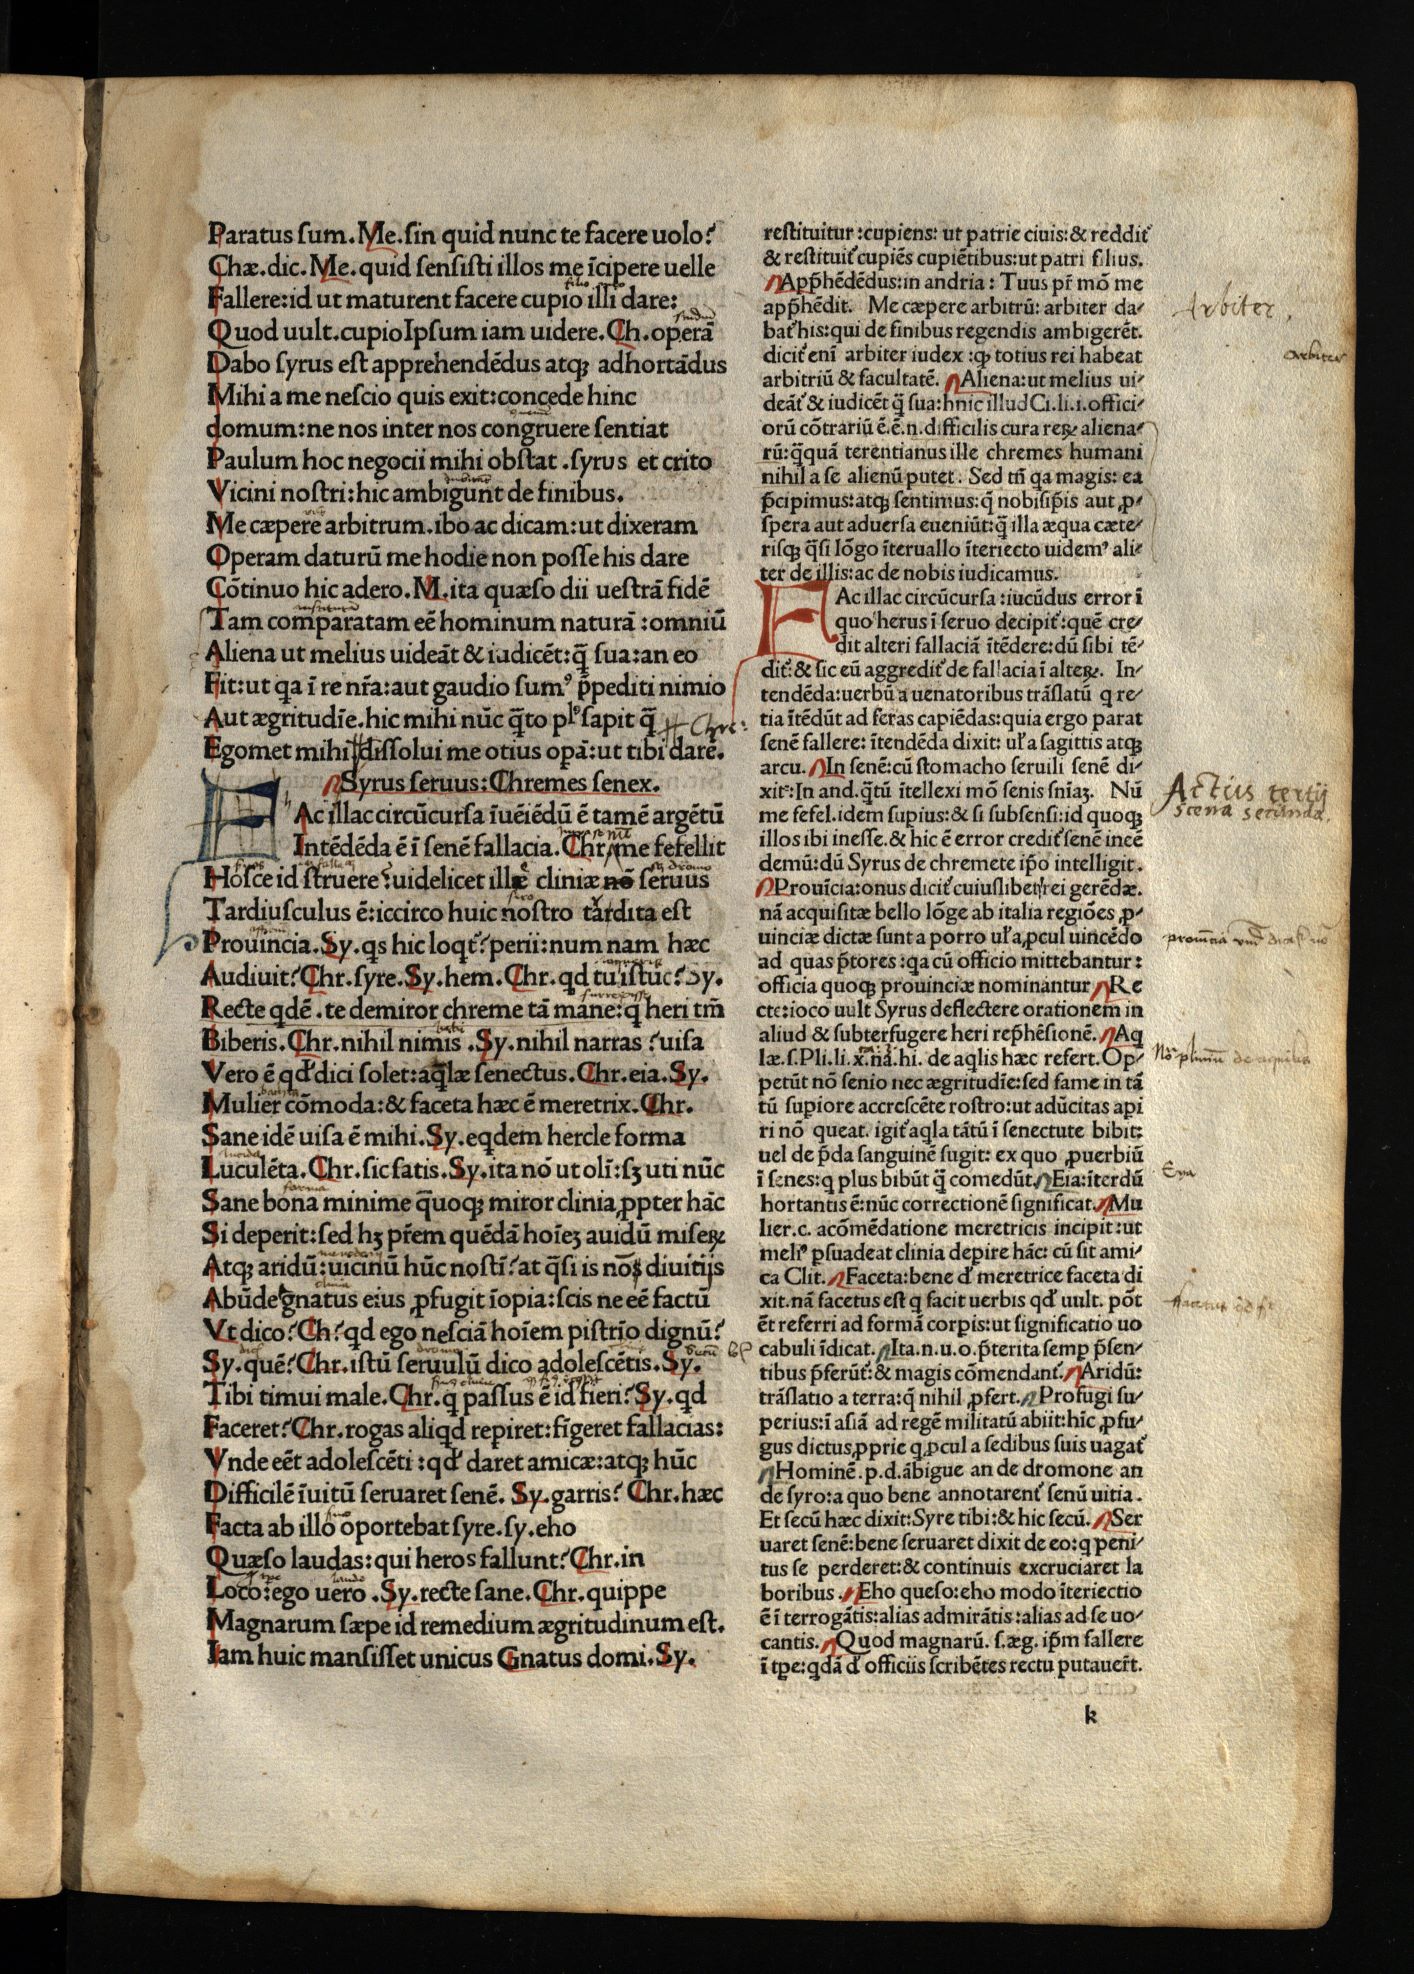 Paratus ſum. Me. ſin quid nunc te facere uolo?
Chæ. dic. Me. quid ſenſiſti illos me īcipere uelle
Fallere: id ut maturent facere cupio illi dare:
Quod uult. cupio Ipſum iam uidere. Ch. operā
Dabo ſyrus eſt apprehendēdus atqꝫ adhortādus
Mihi a me neſcio quis exit: concede hinc
domum: ne nos inter nos congruere ſentiat
Paulum hoc negocii mihi obſtat. ſyrus et crito
Vicini noſtri: hic ambigunt de finibus.
Me cæpere arbitrum. ibo ac dicam: ut dixeram
Operam daturū me hodie non poſſe his dare
Cōtinuo hic adero. M. ita quæſo dii ueſtrā fidē
Tam comparatam eē hominum naturā: omniū
Aliena ut melius uideāt & iudicēt: q̄ ſua: an eo
Fit: ut qa ī re nr̄a: aut gaudio ſumꝰ p̄pediti nimio
Aut ægritudīe. hic mihi nūc q̄to plꝰ ſapit q̄
Egomet mihi diſſolui me otius opā: ut tibi darē.
Syrus ſeruus: Chremes ſenex.
HAc illac circūcurſa īuēiēdū ē tamē argētū
Intēdēda ē ī ſenē fallacia. Chr. me fefellit
Hoſce id ſtruere? uidelicet illæ cliniæ nō ſeruus
Tardiuſculus ē: iccirco huic noſtro tardita eſt
Prouincia. Sy. qs hic loqt̄? perii: num nam hæc
Audiuit? Chr. ſyre. Sy. hem. Chr. qd tu iſtuc? Sy.
Recte qdē. te demiror chreme tā mane: q heri tm̄
Biberis. Chr. nihil nimis. Sy. nihil narras? uiſa
Vero ē qd̓ dici ſolet: aqlæ ſenectus. Chr. eia. Sy.
Mulier cōmoda: & faceta hæc ē meretrix. Chr.
Sane idē uiſa ē mihi. Sy. eqdem hercle forma
Luculēta. Chr. ſic ſatis. Sy. ita nō ut olī: ſꝫ uti nūc
Sane bona minime q̄quoqꝫ miror clinia ꝓpter hāc
Si deperit: ſed hꝫ pr̄em quēdā hoīeꝫ auidū miſeꝝ
Atqꝫ aridū: uicinū hūc noſtī? at q̄ſi is nō diuitiis
Abūde gnatus eius ꝓfugit īopia: ſcis ne eē factū
Vt dico? Ch? qd ego neſciā hoīem piſtrīo dignū?
Sy. quē? Chr. iſtū ſeruulū dico adoleſcētis. Sy.
Tibi timui male. Chr. q paſſus ē id fieri? Sy. qd
Faceret? Chr. rogas aliqd reꝑiret: fīgeret fallacias:
Vnde eēt adoleſcēti: qd̓ daret amicæ: atqꝫ hūc
Difficilē īuitū ſeruaret ſenē. Sy. garris? Chr. hæc
Facta ab illo oportebat ſyre. ſy. eho
Quæſo laudas: qui heros fallunt? Chr. in
Loco: ego uero. Sy. recte ſane. Chr. quippe
Magnarum ſæpe id remedium ægritudinum eſt.
Iam huic manſiſſet unicus Gnatus domi. Sy.
reſtituitur: cupiens: ut patrie ciuis: & reddit̄
& reſtituit̄ cupiēs cupiētibus: ut patri filius.
App̄hēdēdus: in andria: Tuus pr̄ mō me
app̄hēdit. Me cæpere arbitrū: arbiter da-
bat̄ his: qui de finibus regendis ambigerēt.
dicit̄ enī arbiter iudex: qꝫ totius rei habeat
arbitriū & facultatē. Aliena: ut melius ui-
deāt̄ & iudicēt q̄ ſua: hnic illud Ci. li. i. offici-
orū cōtrariū ē. ē. n. difficilis cura reꝝ aliena-
rū: q̄quā terentianus ille chremes humani
nihil a ſe alienū putet. Sed tn̄ qa magis: ea
p̄cipimus: atqꝫ ſentimus: q̄ nobiſip̄is aut ꝓ-
ſpera aut aduerſa eueniūt: q̄ illa æqua cæte-
riſqꝫ q̄ſi lōgo īteruallo īteriecto uidemꝰ ali-
ter de illis: ac de nobis iudicamus.
HAc illac circūcurſa: iucūdus error ī
quo herus ī ſeruo decipit̄: quē cre-
dit alteri fallaciā ītēdere: dū ſibi tē-
dit̄: & ſic eū aggredit̄ de fallacia ī alteꝝ. In-
tendēda: uerbū a uenatoribus trāſlatū q re-
tia ītēdūt ad feras capiēdas: quia ergo parat
ſenē fallere: ītendēda dixit: uľ a ſagittis atqꝫ
arcu. In ſenē: cū ſtomacho ſeruili ſenē di-
xit: In and. q̄tū ītellexi mō ſenis ſnīaꝫ. Nū
me fefel. idem ſupius: & ſi ſubſenſi: id quoqꝫ
illos ibi ineſſe. & hic ē error credit̄ ſenē ineē
demū: dū Syrus de chremete ip̄o intelligit.
Prouīcia: onus dicit̄ cuiuſlibet rei gerēdæ.
nā acquiſitæ bello lōge ab italia regiōes ꝓ-
uinciæ dictæ ſunt a porro uľ a ꝓcul uincēdo
ad quas p̄tores: qa cū officio mittebantur:
officia quoqꝫ prouinciæ nominantur Re
cte: ioco uult Syrus deflectere orationem in
aliud & ſubterfugere heri rep̄hēſionē. Aq
læ. ſ. Pli. li. x. nā. hi. de aqlis hæc refert. Op-
petūt nō ſenio nec ægritudīe: ſed fame in tā
tū ſupiore accreſcēte roſtro: ut adūcitas api
ri nō queat. igit̄ aqla tātū ī ſenectute bibit:
uel de p̄da ſanguinē ſugit: ex quo ꝓuerbiū
ī ſenes: q plus bibūt q̄ comedūt. Eia: īterdū
hortantis ē: nūc correctionē ſignificat. Mu
lier. c. acōmēdatione meretricis incipit: ut
meliꝰ ꝑſuadeat clinia deꝑire hāc: cū ſit ami-
ca Clit. Faceta: bene d̓ meretrice faceta di
xit. nā facetus eſt q facit uerbis qd̓ uult. pōt
ēt referri ad formā corꝑis: ut ſignificatio uo
cabuli īdicat. Ita. n. u. o. p̄terita ſemꝑ p̄ſen-
tibus p̄ferūt̄: & magis cōmendant̄. Aridū:
trāſlatio a terra: q̄ nihil ꝓfert. Profugi ſu-
perius: ī aſiā ad regē militatū abiit: hic ꝓfu-
gus dictus ꝓprie q ꝓcul a ſedibus ſuis uagat̄
Hominē. p. d. ābigue an de dromone an
de ſyro: a quo bene annotarent̄ ſenū uitia.
Et ſecū hæc dixit: Syre tibi: & hic ſecū. Ser
uaret ſenē: bene ſeruaret dixit de eo: q peni-
tus ſe perderet: & continuis excruciaret la
boribus. Eho queſo: eho modo īteriectio
ē ī terrogātis: alias admirātis: alias ad ſe uo-
cantis. Quod magnarū. ſ. æg. ip̄m fallere
ī tꝑe: qdā d̓ officiis ſcribētes rectu putauer̄t.
k
Arbiter.
arbiter
Chre:
Actus tertij
scena secunda.
Eya